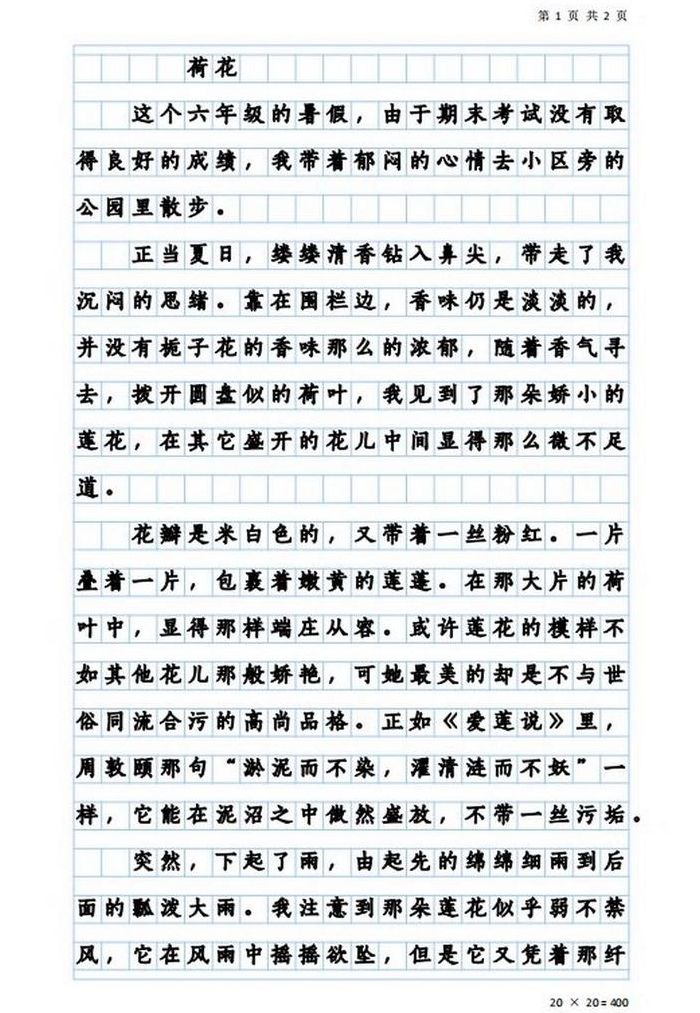 第 1 页 共 2 页
荷花
这个六年级的暑假，由于期末考试没有取
得良好的成绩，我带着郁闷的心情去小区旁的
公园里散步。
正当夏日，缕缕清香钻入鼻尖，带走了我
沉闷的思绪。靠在围栏边，香味仍是淡淡的，
并没有栀子花的香味那么的浓郁，随着香气寻
去，拨开圆盘似的荷叶，我见到了那朵娇小的
莲花，在其它盛开的花儿中间显得那么微不足
道。
花瓣是米白色的，又带着一丝粉红。一片
叠着一片，包裹着嫩黄的莲蓬。在那大片的荷
叶中，显得那样端庄从容。或许莲花的模样不
如其他花儿那般娇艳，可她最美的却是不与世
俗同流合污的高尚品格。正如《爱莲说》里，
周敦颐那句“淤泥而不染，濯清涟而不妖”一
样，它能在泥沼之中傲然盛放，不带一丝污垢。
突然，下起了雨，由起先的绵绵细雨到后
面的瓢泼大雨。我注意到那朵莲花似乎弱不禁
风，它在风雨中摇摇欲坠，但是它又凭着那纤
20 × 20 = 400